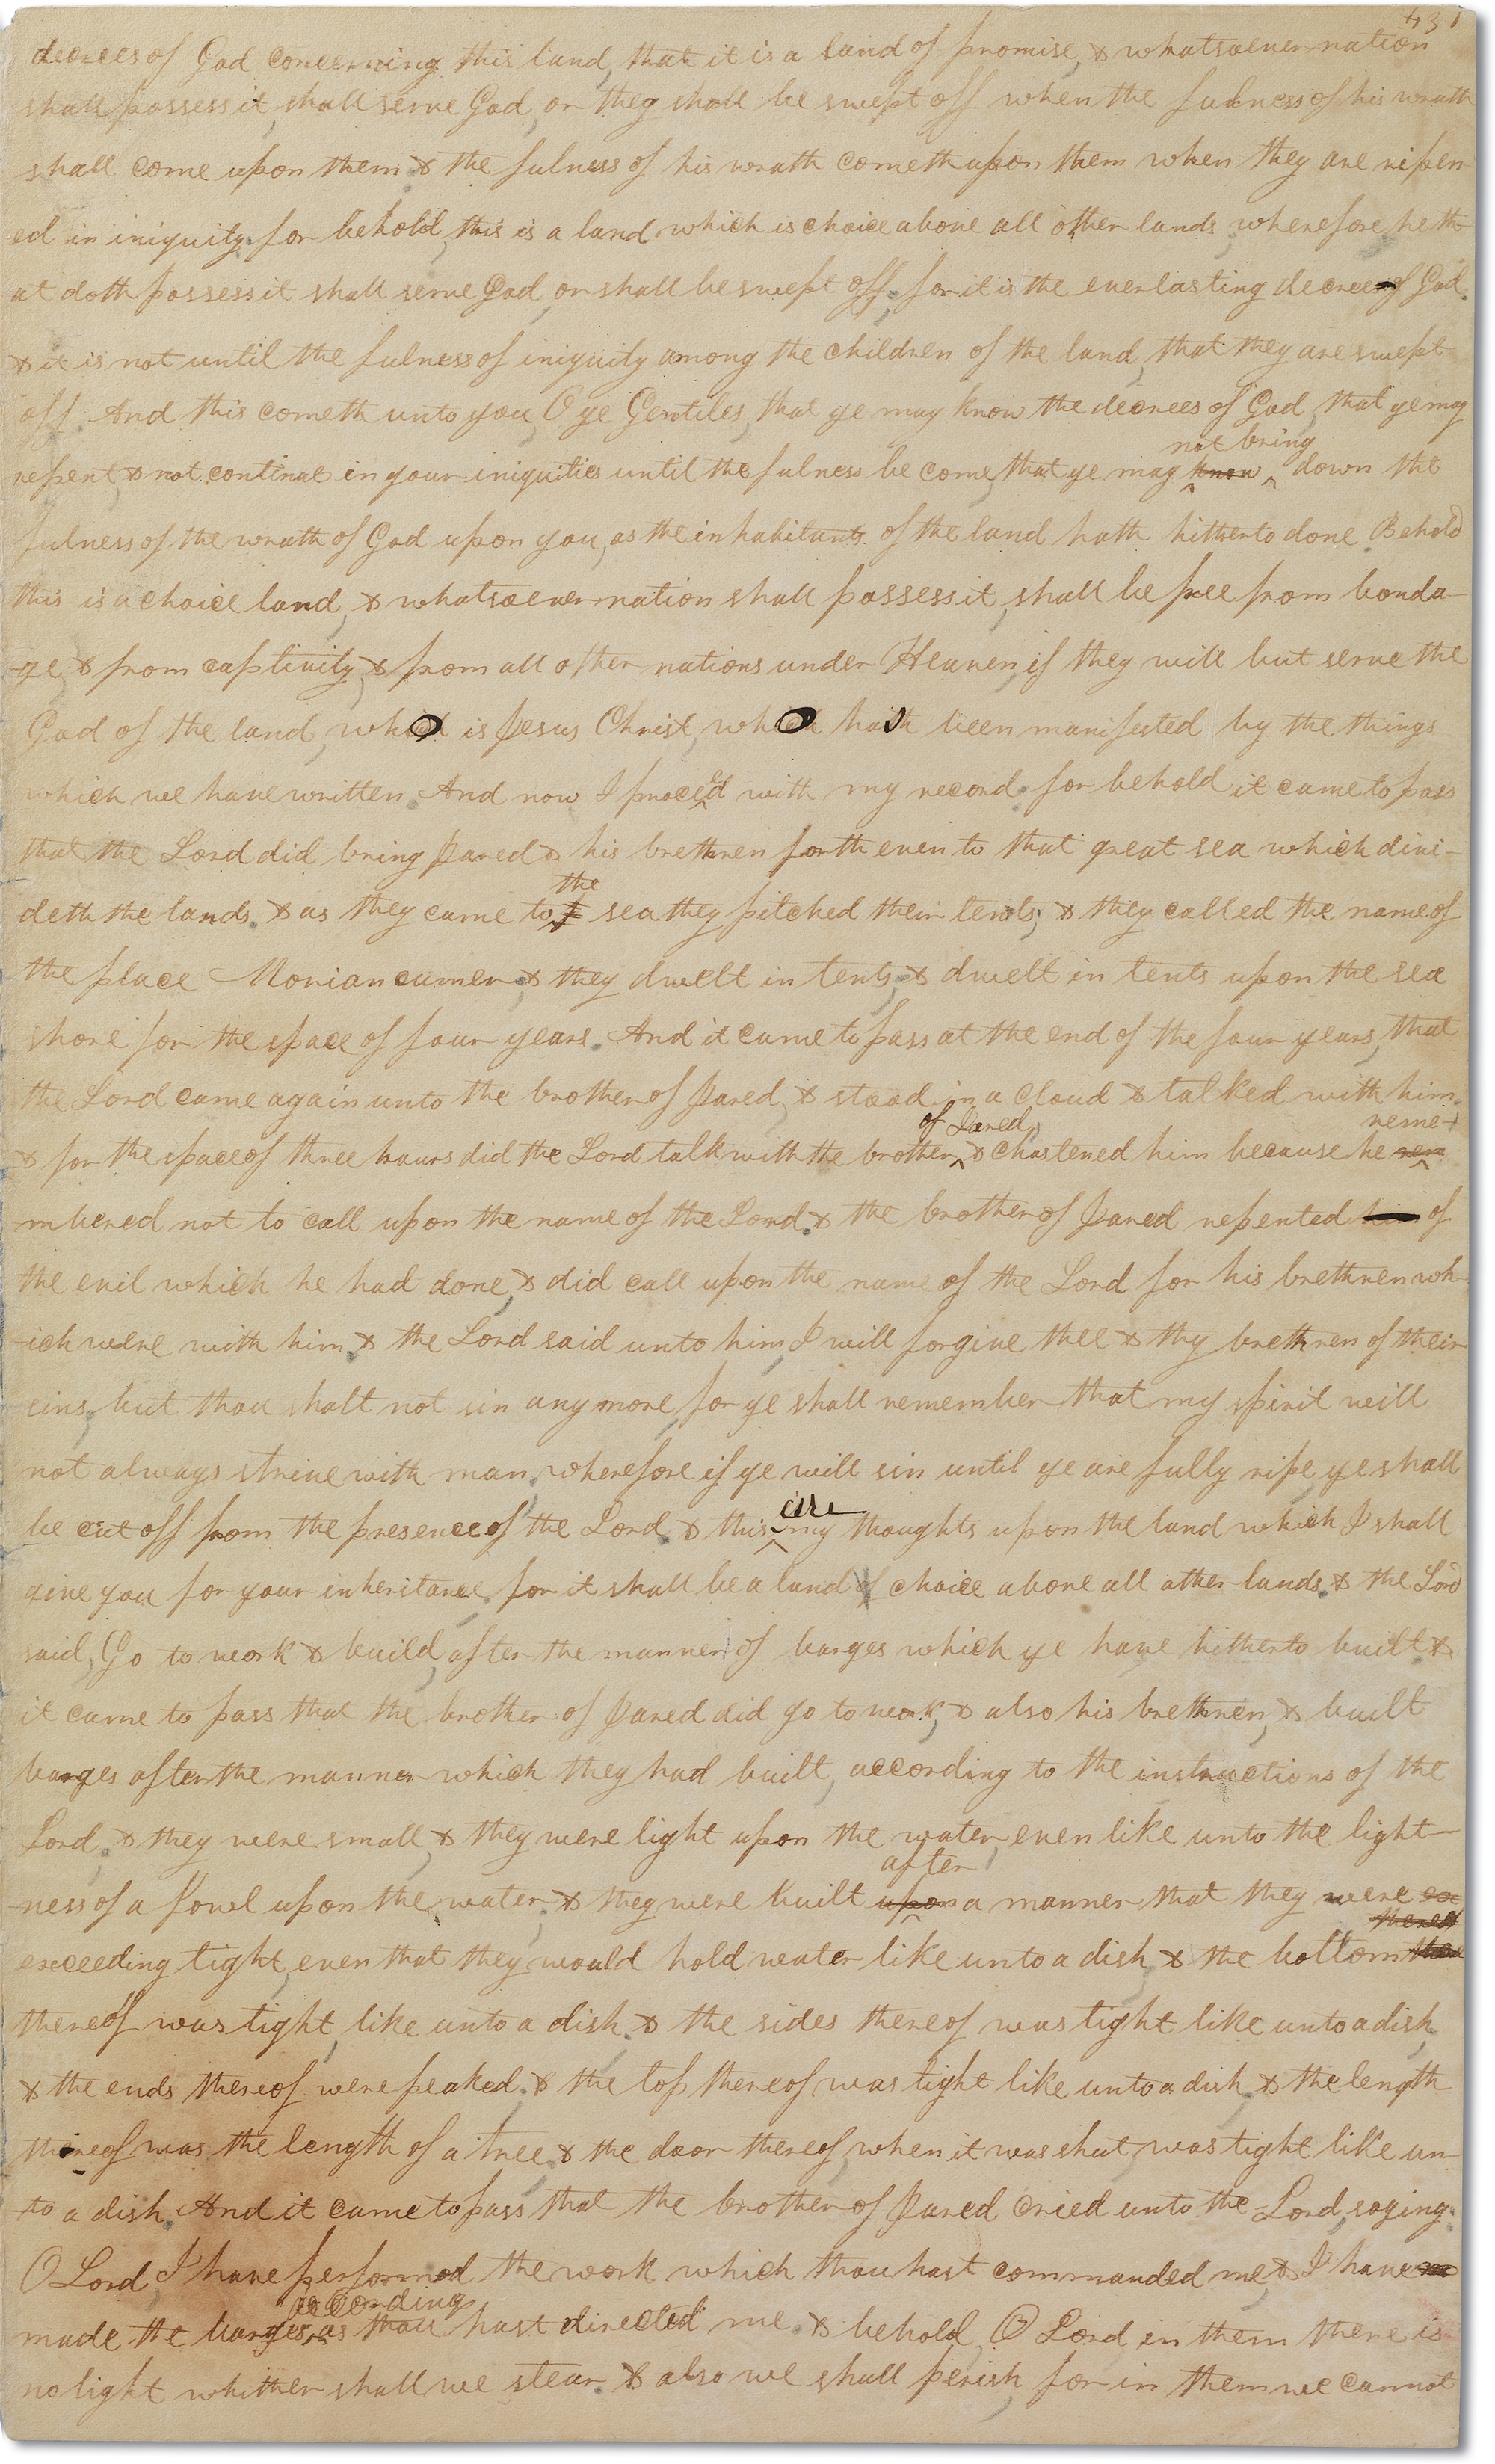 431
decrees of God concerning this land, that it is a land of promise, & whatsoever nation
shall possess it, shall serve God, or they shall be swept off when the fulness of his wrath
shall come upon them. & the fulness of his wrath cometh upon them when they are ripen
ed in iniquity. for behold, this is a land which is choice above all other lands; wherefore he th-
at doth possess it shall serve God, or shall be swept off; for it is the everlasting decree of God.
& it is not until the fulness of iniquity among the children of the land, that they are swept
off. And this cometh unto you, O ye Gentiles, that ye may know the decrees of God, that ye may
not bring
repent, & not continue in your iniquities until the fulness be come, that ye may know ^ down the
fulness of the wrath of God upon you, as the inhabitants of the land hath hitherto done. Behold
this is a choice land, & whatsoever nation shall possess it, shall be free from bonda-
-ge, & from captivity, & from all other nations under Heaven, if they will but serve the
God of the land, who is Jesus Christ, who hath been manifested by the things
which we have written. And now I proceed with my record. for behold it came to pass
that the Lord did bring Jared & his brethren forth even to that great sea which divi-
the
deth the lands. & as they came to ^ sea they pitched their tents; & they called the name of
the place Moriancumer; & they dwelt in tents, & dwelt in tents upon the sea
shore for the space of four years. And it came to pass at the end of the four years, that
the Lord came again unto the brother of Jared, & stood in a cloud & talked with him.
of Jared, reme-
& for the space of three hours did the Lord talk with the brother ^ & chastened him because he rem ^
-mbered not to call upon the name of the Lord. & the brother of Jared repented him of
the evil which he had done, & did call upon the name of the Lord for his brethren wh-
-ich were with him. & the Lord said unto him, I will forgive thee & thy brethren of their
sins; but thou shalt not sin any more, for ye shall remember that my spirit will
not always strive with man. wherefore if ye will sin until ye are fully ripe, ye shall
are
be cut off from the presence of the Lord. & this ^ my thoughts upon the land which I shall
give you for your inheritance. for it shall be a land choice above all other lands. & the Lord
said, Go to work & build, after the manner of barges which ye have hitherto built. &
it came to pass that the brother of Jared did go to work, & also his brethren, & built
barges after the manner which they had built, according to the instructions of the
Lord. & they were small, & they were light upon the water, even like unto the light-
after
-ness of a fowl upon the water. & they were built upon ^ a manner that they were ex
thereof
exceeding tight, even that they would hold water like unto a dish, & the bottom
thereof was tight, like unto a dish. & the sides thereof was tight like unto a dish,
& the ends thereof were peaked. & the top thereof was tight like unto a dish, & the length
thereof was the length of a tree. & the door thereof, when it was shut was tight like un-
-to a dish. And it came to pass that the brother of Jared cried unto the Lord, saying.
O Lord, I have performed the work which thou hast commanded me, & I have
according
made the barges, ^ as thou hast directed me. & behold, O Lord, in them there is
no light whither shall we stear. & also we shall perish, for in them we cannot